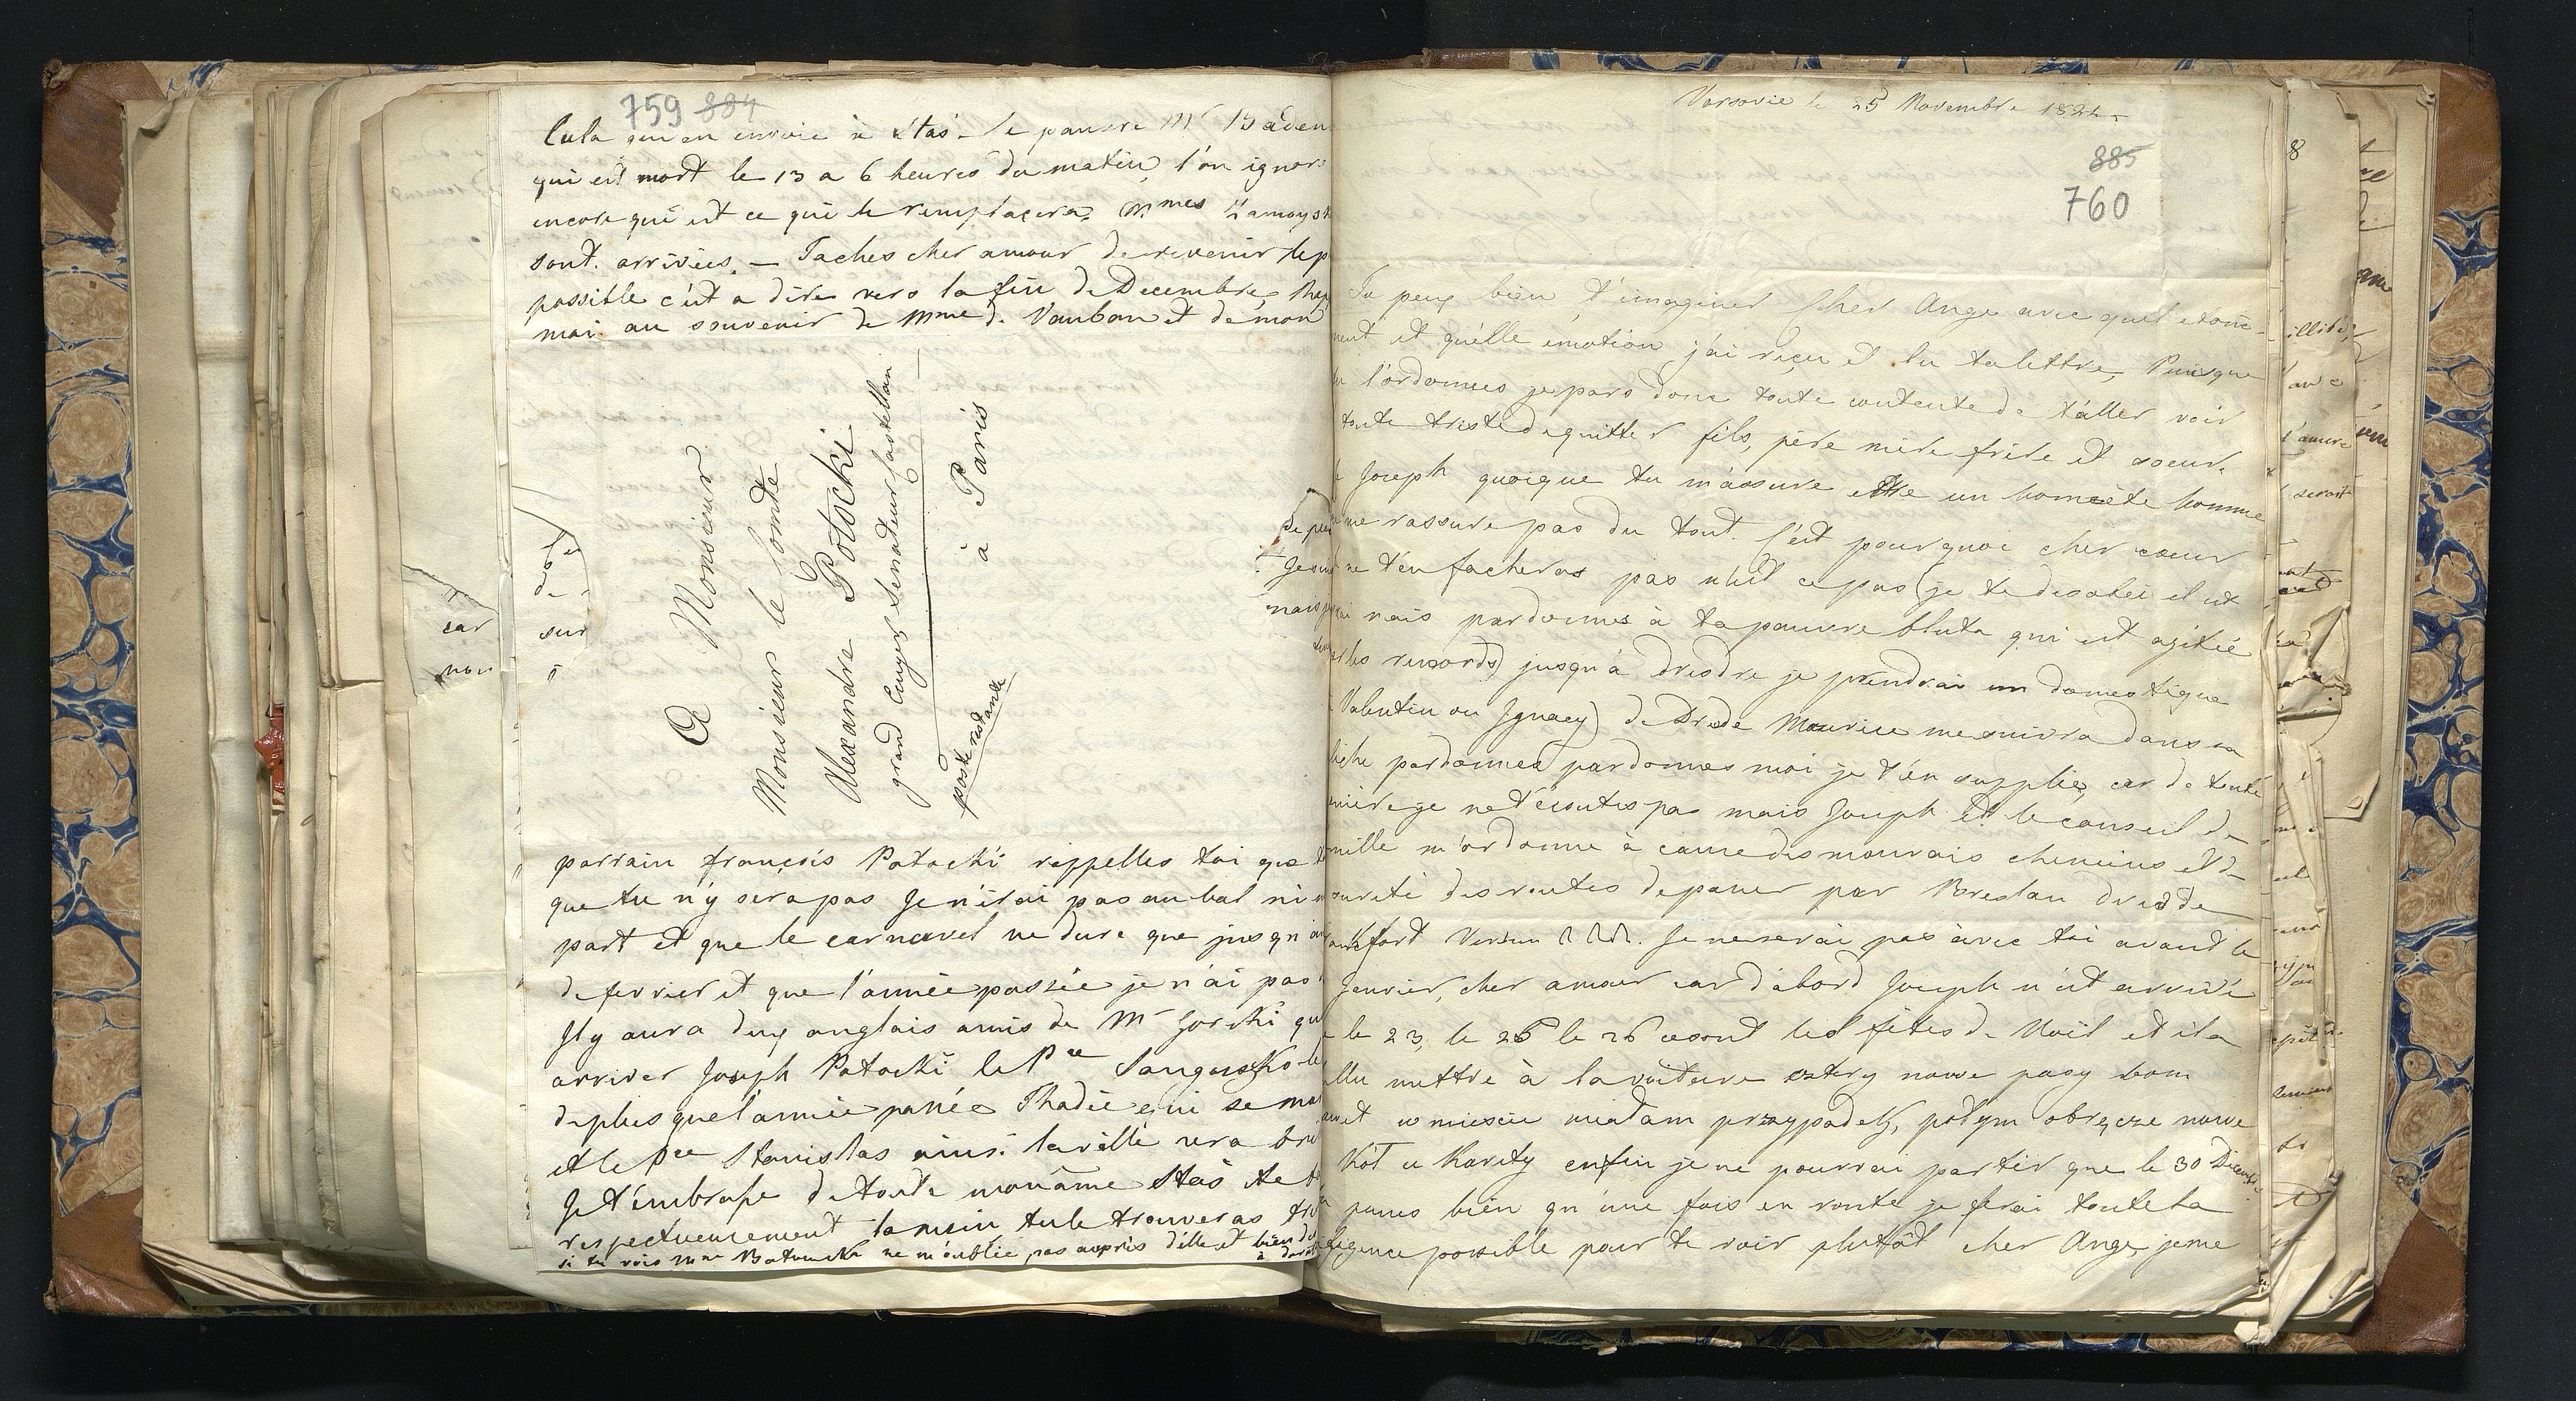 759 884
cela qu'on envoie à Stas. le pauvre Mr Badeni
qui est mort le 13 a 6 heures du matin, l'on ignore
encore qui est ce qui le remplacera. Mmes Zamoyska
sont arrivées. — Taches cher amour de revenir
possible c'est a dire vers la fin de Decembre
moi au souvenir de Mme de Vauban et de mon
A Monsieur
Monsieur le Comte
Alexandre Potocki
grand Ecuyer Senateur Castellan
à Paris
poste restante
parrain françois Potocki rappelles toi que
que tu n'y sera pas Je n'irai pas au bal ni
part et que le carnaval ne dure que jusqu'au
de fevrier et que l'année passée je n'ai pas
Il y aura deux anglais amis de Mr Gorski
arriver Joseph Potocki le Pce Sanguszko
de plus que l'année passée Thadée qui se
et le Pce Stanislas ainsi la ville sera
Je t'embrasse de toute mon âme Stas te
respectueusement la main, tu le trouveras
si tu vois Mme ne m'oublie pas auprès d'elle et bien
car
non
sur
Varsovie le 25 Novembre 1824
885
760
Tu peux bien t'imaginer Cher Ange avec quel étonne-
ment et quélle emotion j'ai reçu et lu ta lettre, Puisque
tu l'ordonnes je pars donc toute contente de t'aller voir
toute triste de quitter fils, père mère frère et soeur.
Joseph quoique tu m'assure etre un homête homme
ne me rassure pas du tout. C'est pourquoi cher coeur
ne t'en facheras pas n'est ce pas (je te desobéi il est
vrai mais pardonnes à ta pauvre bluta qui est agitée
par les remords) jusqu'à dresdre je prendrai un domestique
(Valentin ou Jgnacy) de Dresde Maurice me suivra dans sa
biche pardonnes pardonnes moi je t'en supplie, car de toute
manière je ne t'écoutes pas mais Joseph et le conseil de
famille m'ordonne à cause des mauvais chemins et de
sureté des routes de passer par Breslau dresde
Frankfort Verdun. Je ne serai pas avec toi avant le
Janvier, cher amour car d'abord Joseph n'est arrivé
le 23, le 25 le 26 ce sont les fêtes de Noël et il a
fallu mettre à la voiture cztery nowe pasy bom
nawet w miescie miałam przypadek, potym obręcze nowe
kół u Karéty enfin je ne pourrai partir que le 30 Decembre
penses bien qu'une fois en route je ferai toute la
diligence possible pour te voir plutôt cher Ange, je me